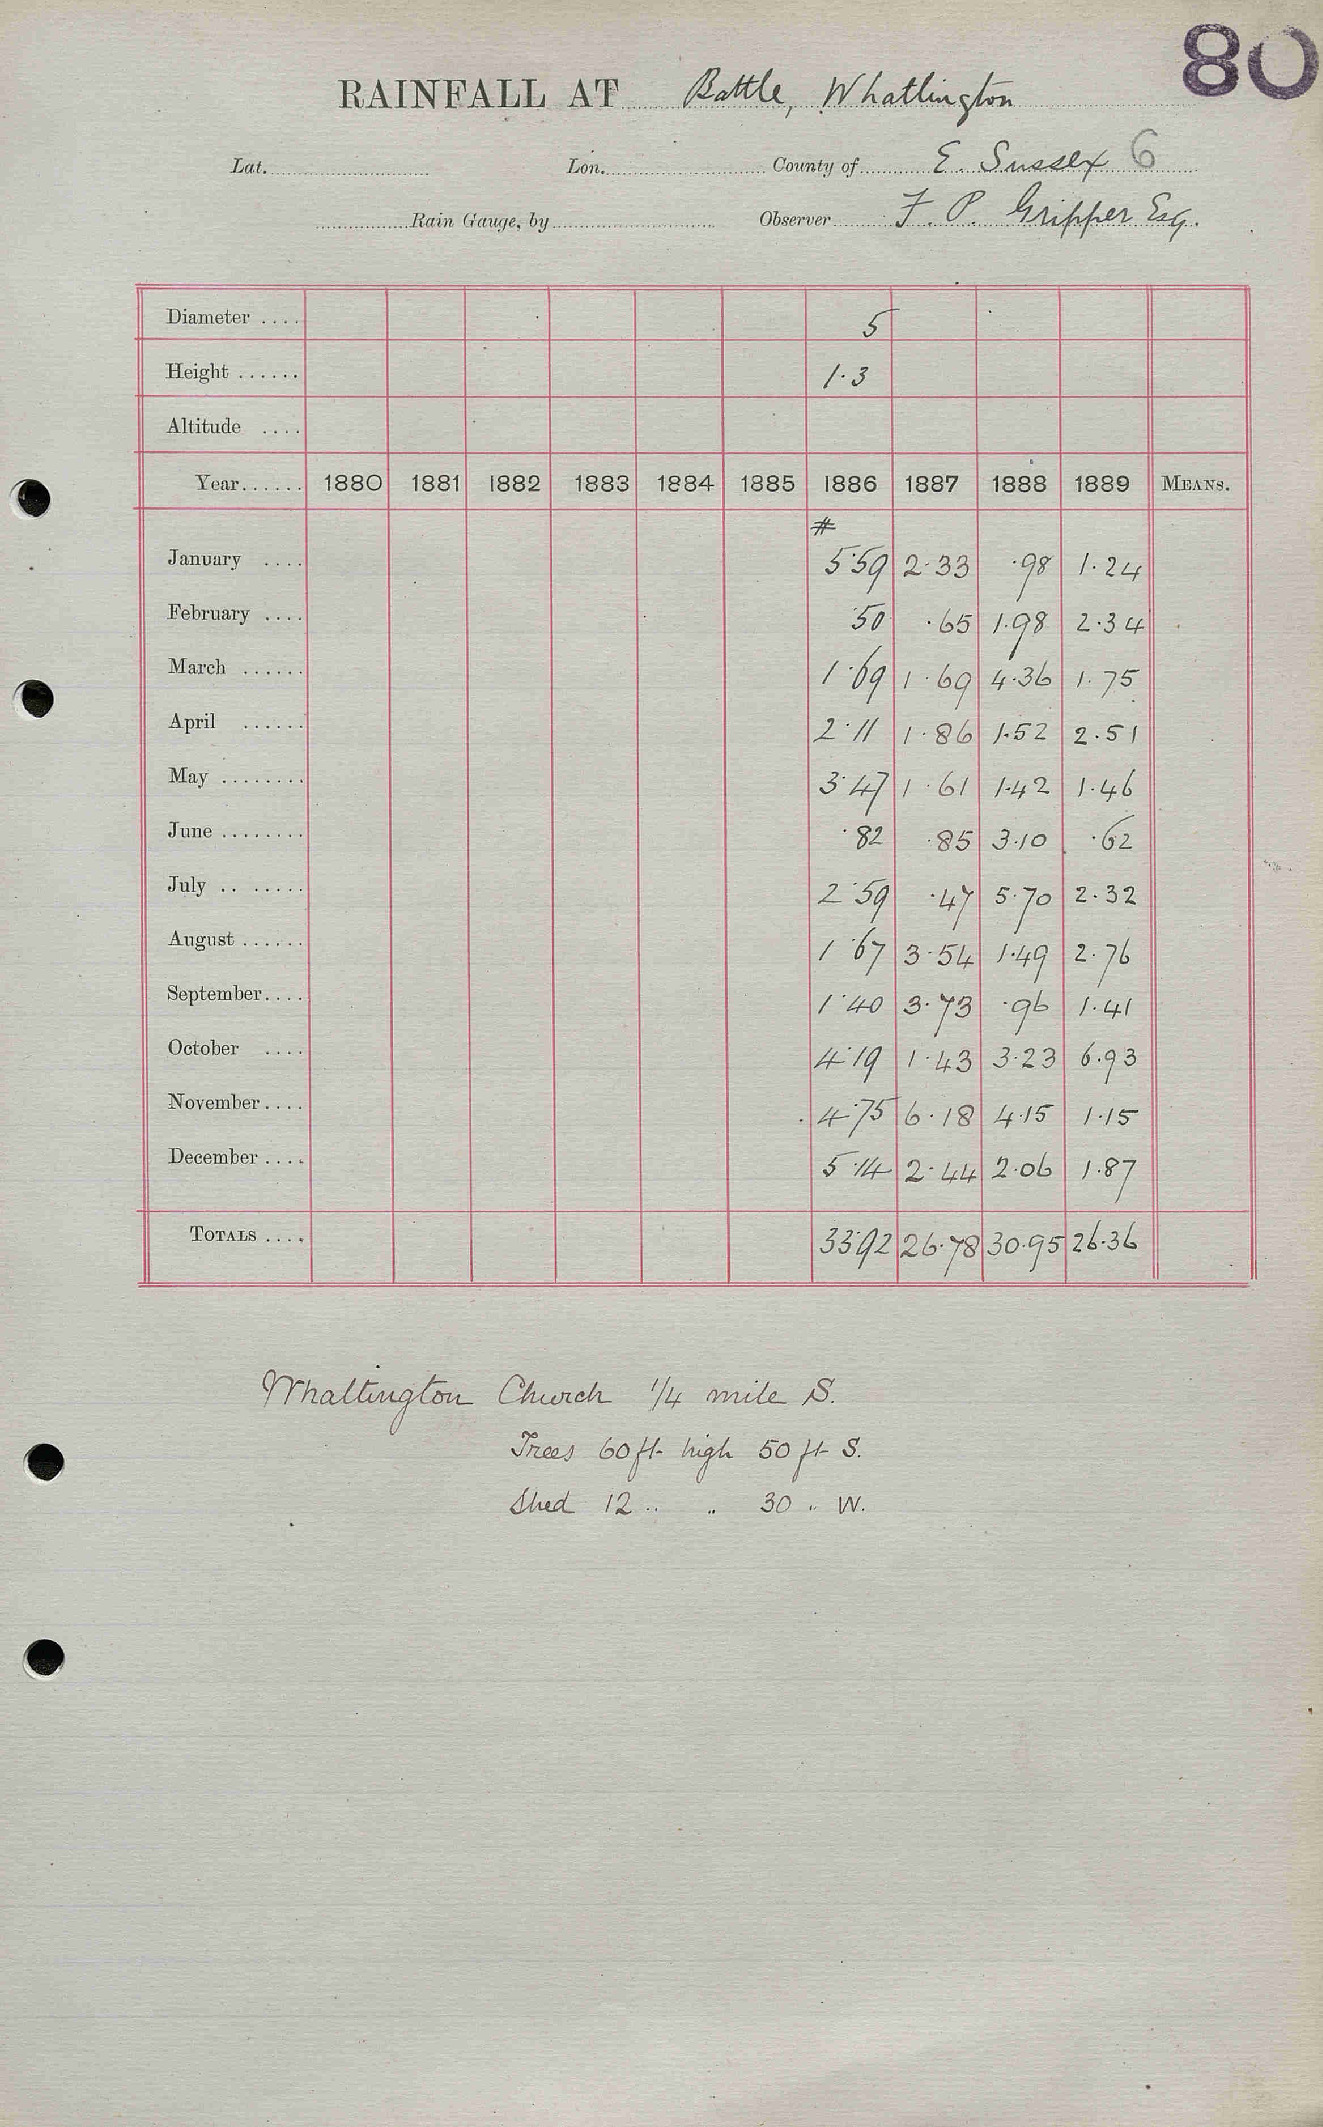 80
RAINFALL AT Battle, Whatlington
Lat. Lon. County of E. Sussex 6
Rain Gauge, by Observer F. P. Gripper Esq.
Diameter .... 5
Height ...... 1.3
Altitude ....
Year...... 1880 1881 1882 1883 1884 1885 1886 1887 1888 1889 MEANS.
#
January .... 5.59 2.33 .98 1.24
February .... .50 .65 1.98 2.34
March ...... 1.69 1.69 4.36 1.75
April ...... 2.11 1.86 1.52 2.51
May ........ 3.47 1.61 1.42 1.46
June ........ .82 .85 3.10 .62
July .. ..... 2.59 .47 5.70 2.32
August ...... 1.67 3.54 1.49 2.76
September.... 1.40 3.73 .96 1.41
October .... 4.19 1.43 3.23 6.93
November.... 4.75 6.18 4.15 1.15
December .... 5.14 2.44 2.06 1.87
TOTALS .... 33.92 26.78 30.95 26.36
Whatlington Church 1/4 mile S.
Trees 60 ft high 50 ft S.
Shed 12 " " 30 " W.